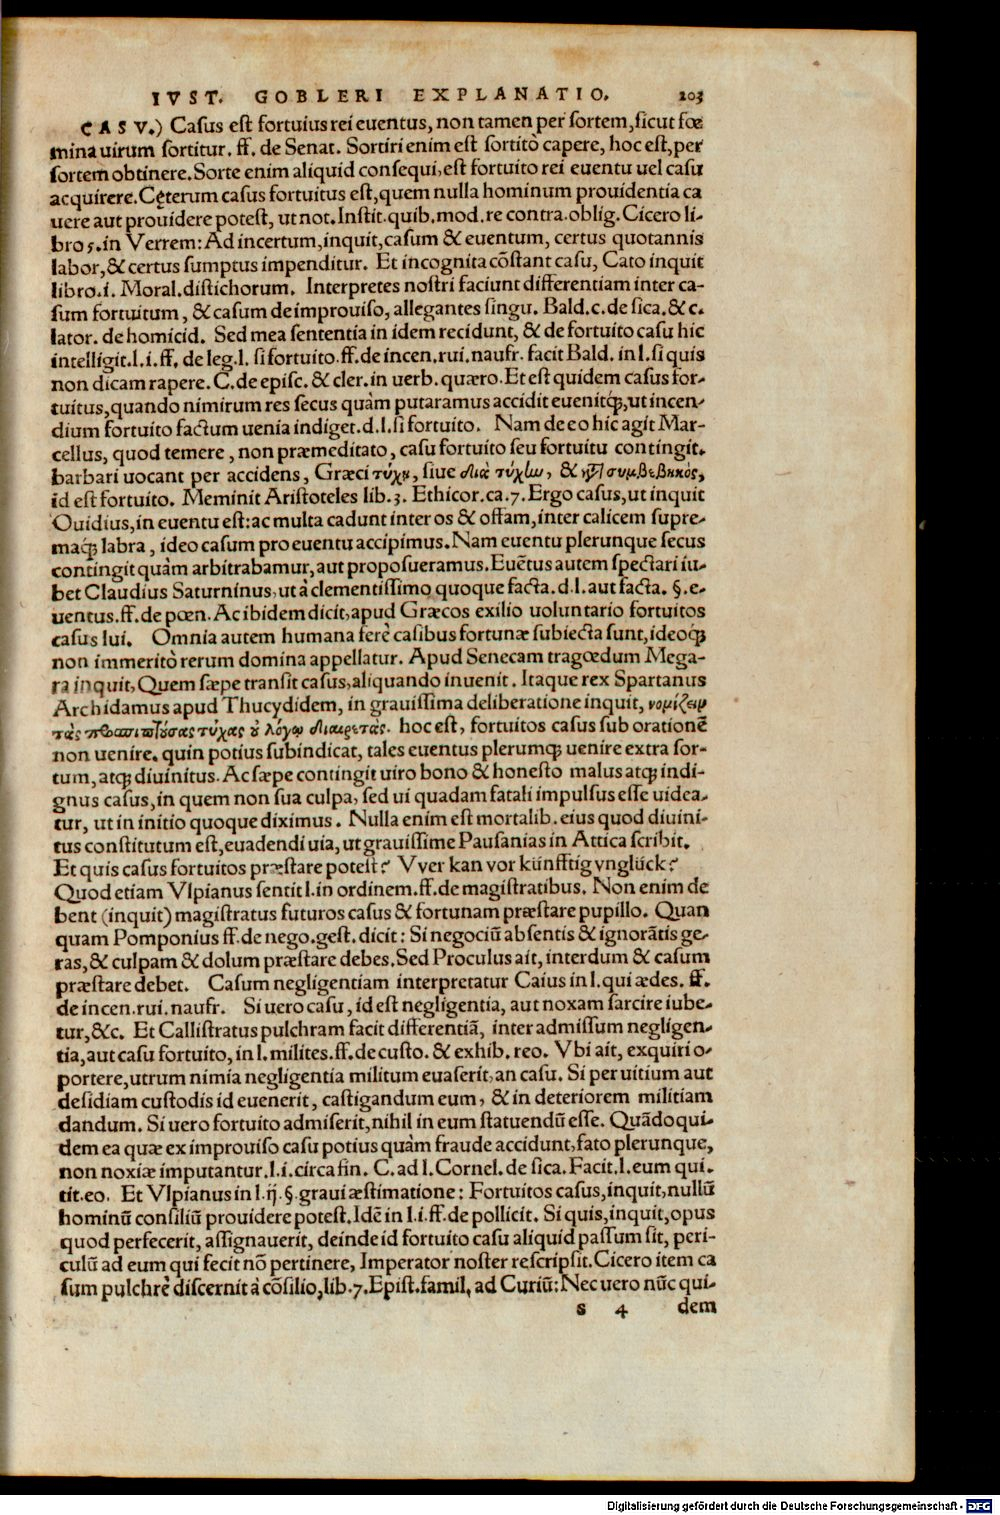 IVST. GOBLERI EXPLANATIO. 203
CASV.) Casus est fortuius rei euentus, non tamen per sortem, sicut fœ
mina uirum sortitur. ff. de Senat. Sortiri enim est sortitò capere, hoc est, per
sortem obtinere. Sorte enim aliquid consequi, est fortuito rei euentu uel casu
acquirere. Cęterum casus fortuitus est, quem nulla hominum prouidentia ca
uere aut prouidere potest, ut not. Instit. quib. mod. re contra. oblig. Cicero li-
bro 5. in Verrem: Ad incertum, inquit, casum & euentum, certus quotannis
labor, & certus sumptus impenditur. Et incognita cõstant casu, Cato inquit
libro. i. Moral. distichorum. Interpretes nostri faciunt differentiam inter ca-
sum fortuitum, & casum de improuiso, allegantes singu. Bald. c. de sica. & c.
lator. de homicid. Sed mea sententia in idem recidunt, & de fortuito casu hic
intelligit. l. i. ff. de leg. l. si fortuito. ff. de incen. rui. naufr. facit Bald. in l. si quis
non dicam rapere. C. de episc. & cler. in uerb. quæro. Et est quidem casus for-
tuitus, quando nimirum res secus quàm putaramus accidit euenitq́;, ut incen-
dium fortuito factum uenia indiget. d. l. si fortuito. Nam de eo hic agit Mar-
cellus, quod temere, non præmeditato, casu fortuito seu fortuitu contingit.
barbari uocant per accidens, Græci τύχῃ, siue διὰ τύχην, & κατὰ συμβεβηκὸς,
id est fortuito. Meminit Aristoteles lib. 3. Ethicor. ca. 7. Ergo casus, ut inquit
Ouidius, in euentu est: ac multa cadunt inter os & offam, inter calicem supre-
maq́; labra, ideo casum pro euentu accipimus. Nam euentu plerunque secus
contingit quàm arbitrabamur, aut proposueramus. Euẽtus autem spectari iu-
bet Claudius Saturninus, ut à clementissimo quoque facta. d. l. aut facta. §. e-
uentus. ff. de pœn. Ac ibidem dicit, apud Græcos exilio uoluntario fortuitos
casus lui. Omnia autem humana ferè casibus fortunæ subiecta sunt, ideoq́;
non immeritò rerum domina appellatur. Apud Senecam tragœdum Mega-
ra inquit, Quem sæpe transit casus, aliquando inuenit. Itaque rex Spartanus
Archidamus apud Thucydidem, in grauissima deliberatione inquit, νομίζειν
τὰς προσπιπτούσας τύχας ὀ λόγῳ διαιρετὰς. hoc est, fortuitos casus sub orationẽ
non uenire. quin potius subindicat, tales euentus plerumq; uenire extra sor-
tum, atq; diuinitus. Ac sæpe contingit uiro bono & honesto malus atq; indi-
gnus casus, in quem non sua culpa, sed ui quadam fatali impulsus esse uidea-
tur, ut in initio quoque diximus. Nulla enim est mortalib. eius quod diuini-
tus constitutum est, euadendi uia, ut grauissime Pausanias in Attica scribit.
Et quis casus fortuitos præstare potest? Vver kan vor künfftig vnglück?
Quod etiam Vlpianus sentit l. in ordinem. ff. de magistratibus. Non enim de
bent (inquit) magistratus futuros casus & fortunam præstare pupillo. Quan
quam Pomponius ff. de nego. gest. dicit: Si negociũ absentis & ignorãtis ge-
ras, & culpam & dolum præstare debes. Sed Proculus ait, interdum & casum
præstare debet. Casum negligentiam interpretatur Caius in l. qui ædes. ff.
de incen. rui. naufr. Si uero casu, id est negligentia, aut noxam sarcire iube-
tur, &c. Et Callistratus pulchram facit differentiã, inter admissum negligen-
tia, aut casu fortuito, in l. milites. ff. de custo. & exhib. reo. Vbi ait, exquiri o-
portere, utrum nimia negligentia militum euaserit, an casu. Si per uitium aut
desidiam custodis id euenerit, castigandum eum, & in deteriorem militiam
dandum. Si uero fortuito admiserit, nihil in eum statuendũ esse. Quãdoqui-
dem ea quæ ex improuiso casu potius quàm fraude accidunt, fato plerunque,
non noxiæ imputantur. l. i. circa fin. C. ad l. Cornel. de sica. Facit. l. eum qui.
tit. eo. Et Vlpianus in l. ij. §. graui æstimatione: Fortuitos casus, inquit, nullũ
hominũ consiliũ prouidere potest. Idẽ in l. i. ff. de pollicit. Si quis, inquit, opus
quod perfecerit, assignauerit, deinde id fortuito casu aliquid passum sit, peri-
culũ ad eum qui fecit nõ pertinere, Imperator noster rescripsit. Cicero item ca
sum pulchrè discernit à cõsilio, lib. 7. Epist. famil. ad Curiũ: Nec uero nũc qui-
s 4 dem
Digitalisierung gefördert durch die Deutsche Forschungsgemeinschaft - DFG